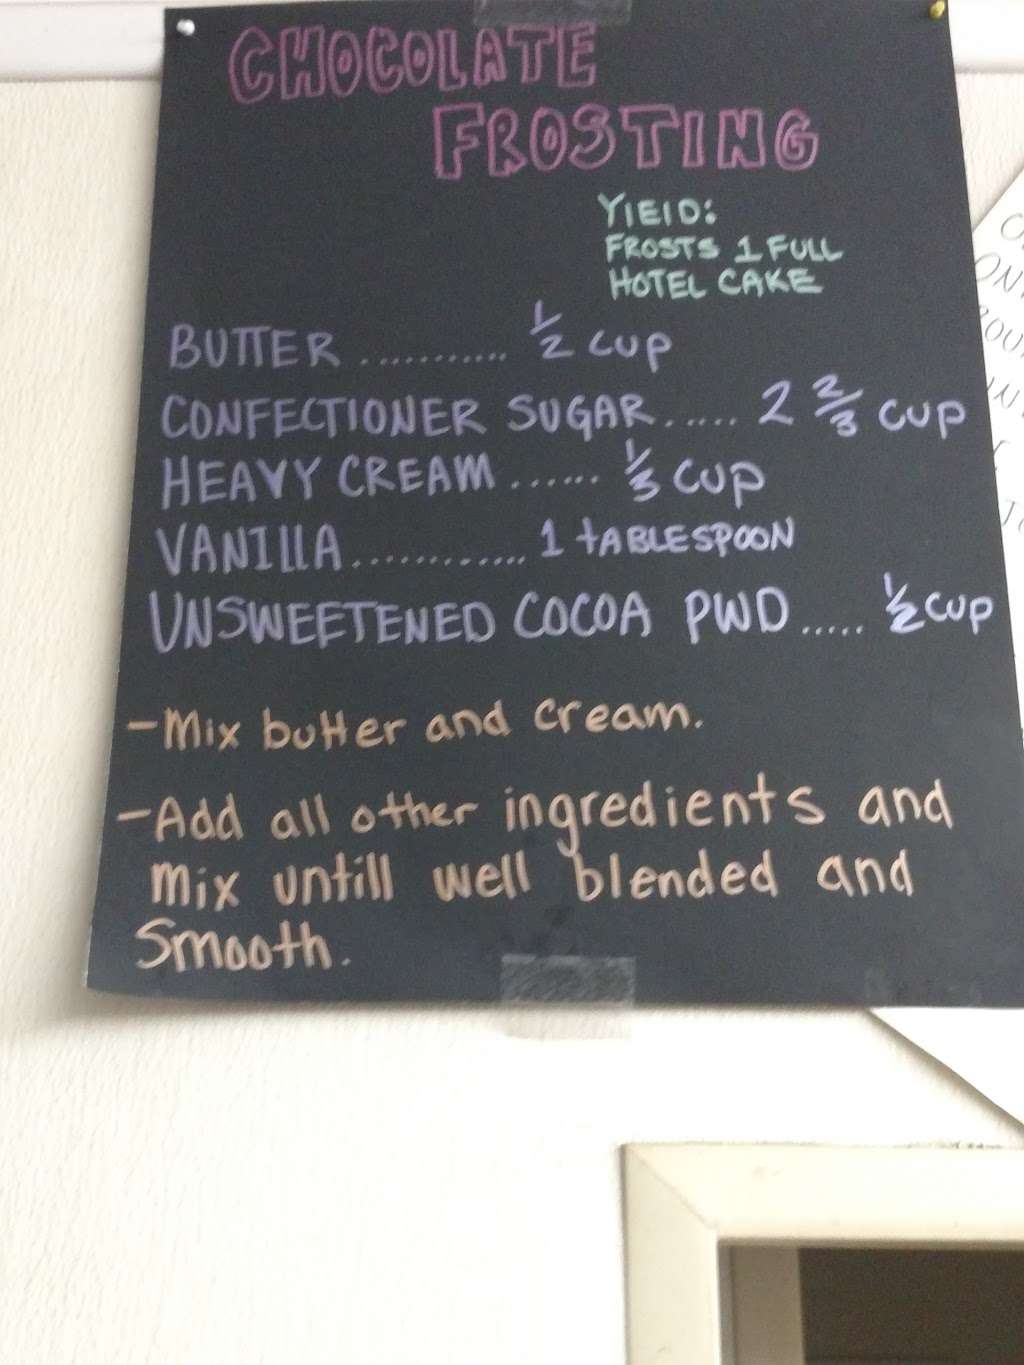 CHOCOLATE
FROSTING
YIElD:
FROSTS 1 FULL
HOTEL CAKE
BUTTER ........... 1/2 cup
CONFECTIONER SUGAR...... 2 2/3 cup
HEAVY CREAM ...... 1/3 cup
VANIllA............ 1 tABLESPOON
UNSWEETENED COCOA PWD ..... 1/2 cup
-Mix butter and cream.
-Add all other ingredients and
mix untill well blended and
Smooth.